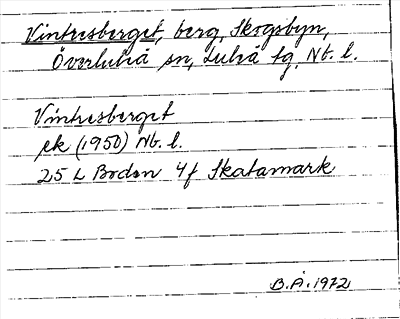 Vintresberget, berg, Skogsbyn,
Överluleå sn, Luleå tg, Nb. l.
Vintresberget
ek (1950) Nb. l.
25 L Boden 4f Skatamark
B.Å. 1972